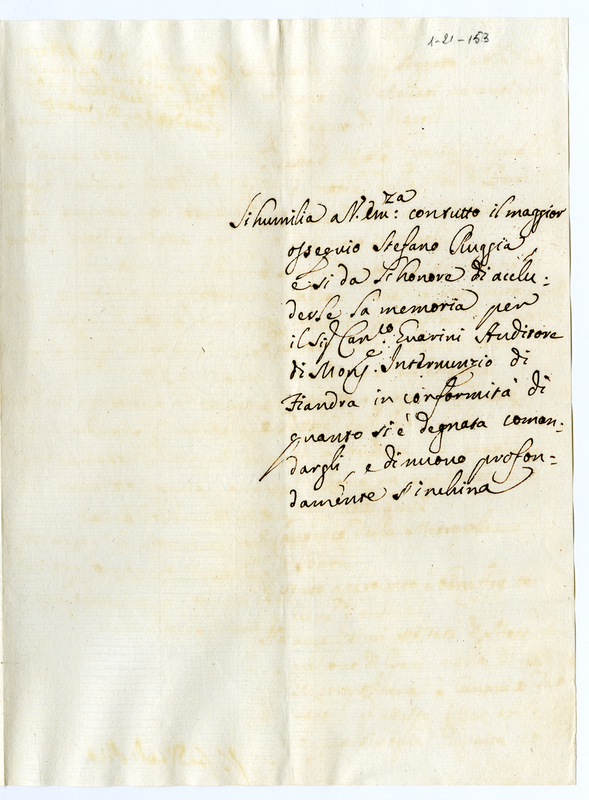 1-21-153
Si humilia a V. Em:za con tutto il maggior
ossequio Stefano Ruggia,
e si da l'honore di acclu-
derle la memoria per
il Sig.r Can.co Guarini Auditore
di Mons.e Internunzio di
Fiandra in conformità di
quanto si è degnata coman-
dargli, e di nuovo profon-
damente s'inchina